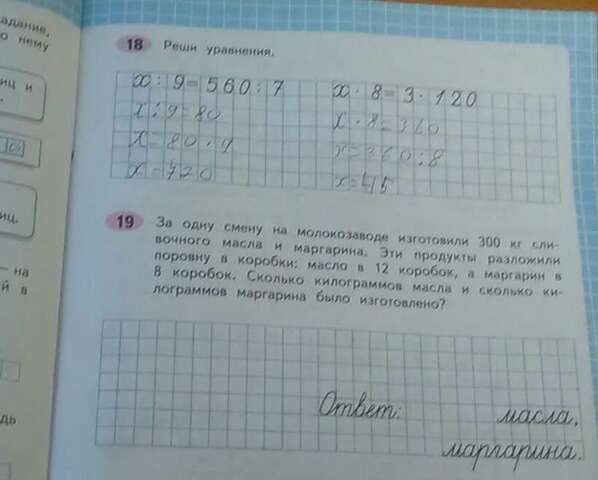 адание,
о нему
иц и
иц.
— на
й в
дь
18 Реши уравнения.
x : 9 = 560 : 7
x · 8 = 3 · 120
x : 9 = 80
x · 8 = 360
x = 80 · 9
x = 360 : 8
x = 720
x = 45
19 За одну смену на молокозаводе изготовили 300 кг сли-
вочного масла и маргарина. Эти продукты разложили
поровну в коробки: масло в 12 коробок, а маргарин в
8 коробок. Сколько килограммов масла и сколько ки-
лограммов маргарина было изготовлено?
Ответ: масла,
маргарина.